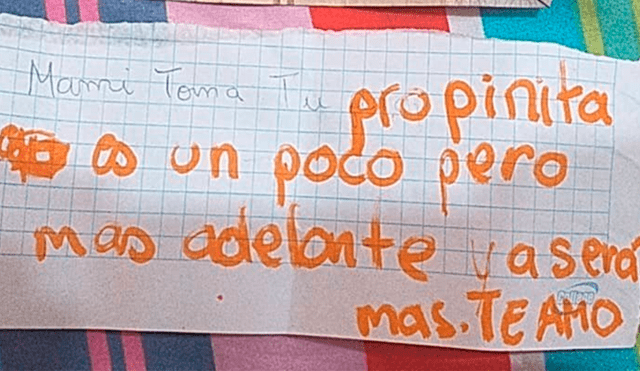 Mami Toma Tu propinita
es un poco pero
mas adelante va sera
mas. TE AMO
College